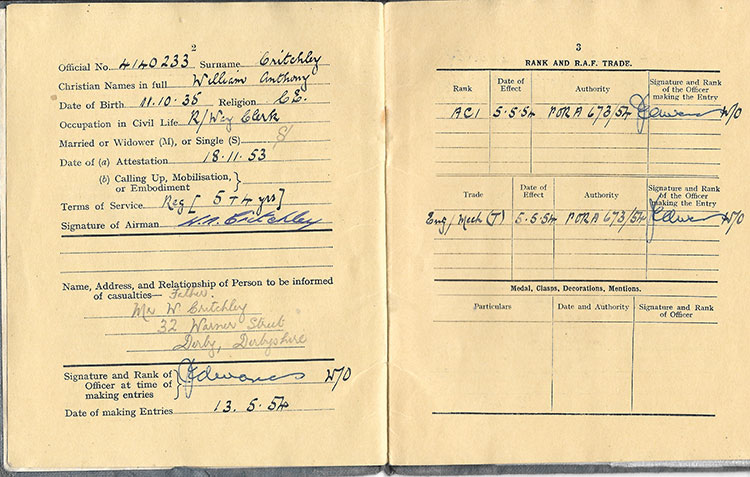 2
Official No. 4140233 Surname Critchley
Christian Names in full William Anthony
Date of Birth 11.10.35 Religion C.E.
Occupation in Civil Life R/Way Clerk
Married or Widower (M), or Single (S) S
Date of (a) Attestation 18.11.53
(b) Calling Up, Mobilisation, or Embodiment
Terms of Service Reg [5+4 yrs]
Signature of Airman W.A. Critchley
Name, Address, and Relationship of Person to be informed
of casualties— Father.
Mr W Critchley
32 Warner Street
Derby, Derbyshire
Signature and Rank of
Officer at time of
making entries
W/O
Date of making Entries 13.5.54
3
RANK AND R.A.F. TRADE.
Rank Date of Effect Authority Signature and Rank of the Officer making the Entry
AC1 5.5.54 POR A 673/54 W/O
Trade Date of Effect Authority Signature and Rank of the Officer making the Entry
Eng/Mech (T) 5.5.54 POR A 673/54 W/O
Medal, Clasps, Decorations, Mentions.
Particulars Date and Authority Signature and Rank of Officer